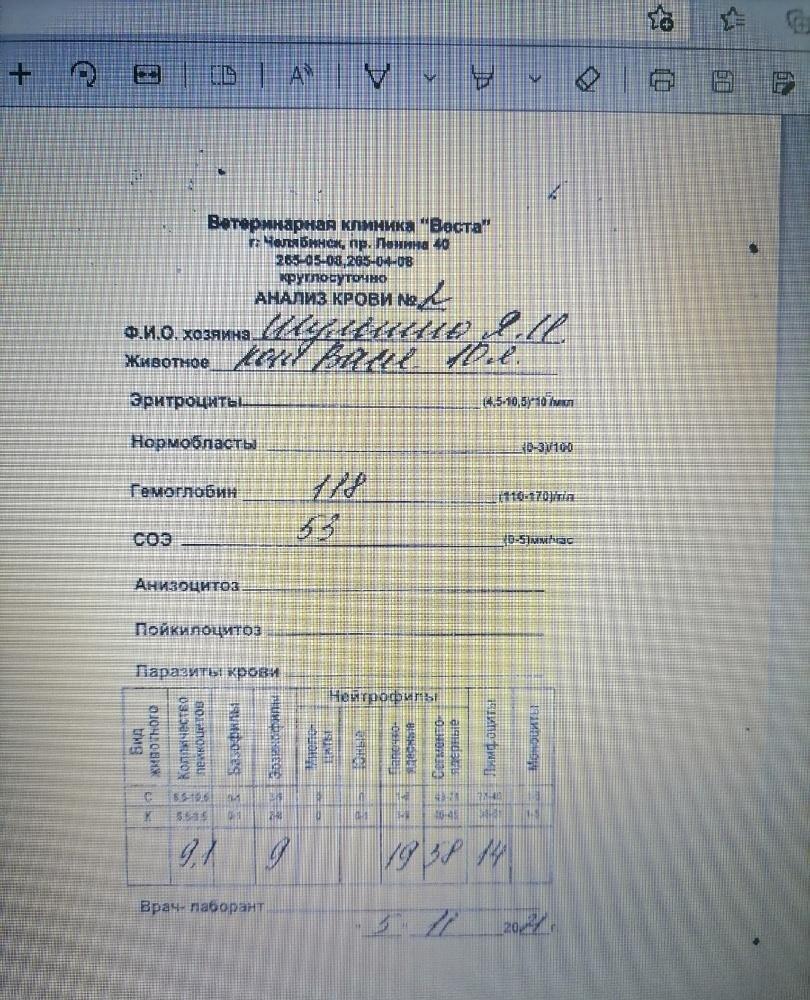 Ветеринарная клиника "Веста"
г. Челябинск, пр. Ленина 40
265-05-08,265-04-08
круглосуточно
АНАЛИЗ КРОВИ №
Ф.И.О. хозяина
Животное кот Ваня 10 л.
Эритроциты (4,5-10,5)*10 /мкл
Нормобласты (0-3)/100
Гемоглобин 118 (110-170)/г/л
СОЭ 53 (0-5)мм/час
Анизоцитоз
Пойкилоцитоз
Паразиты крови
Вид животного Количество лейкоцитов Базофилы Эозинофилы Нейтрофилы Миелоциты Юные Палочко-ядерные Сегменто-ядерные Лимфоциты Моноциты
С
К
9,1 9 19 58 14
Врач- лаборант
5 11 2021 г.